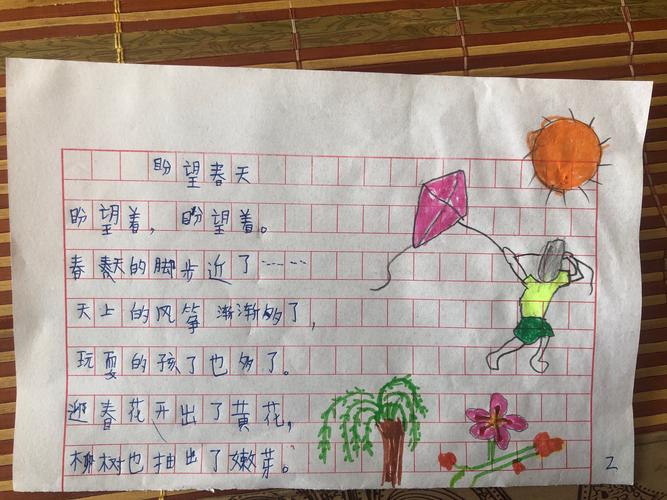 盼望春天
盼望着，盼望着。
春天的脚步近了……
天上的风筝渐渐多了，
玩耍的孩子也多了。
迎春花开出了黄花，
柳树也抽出了嫩芽。
2